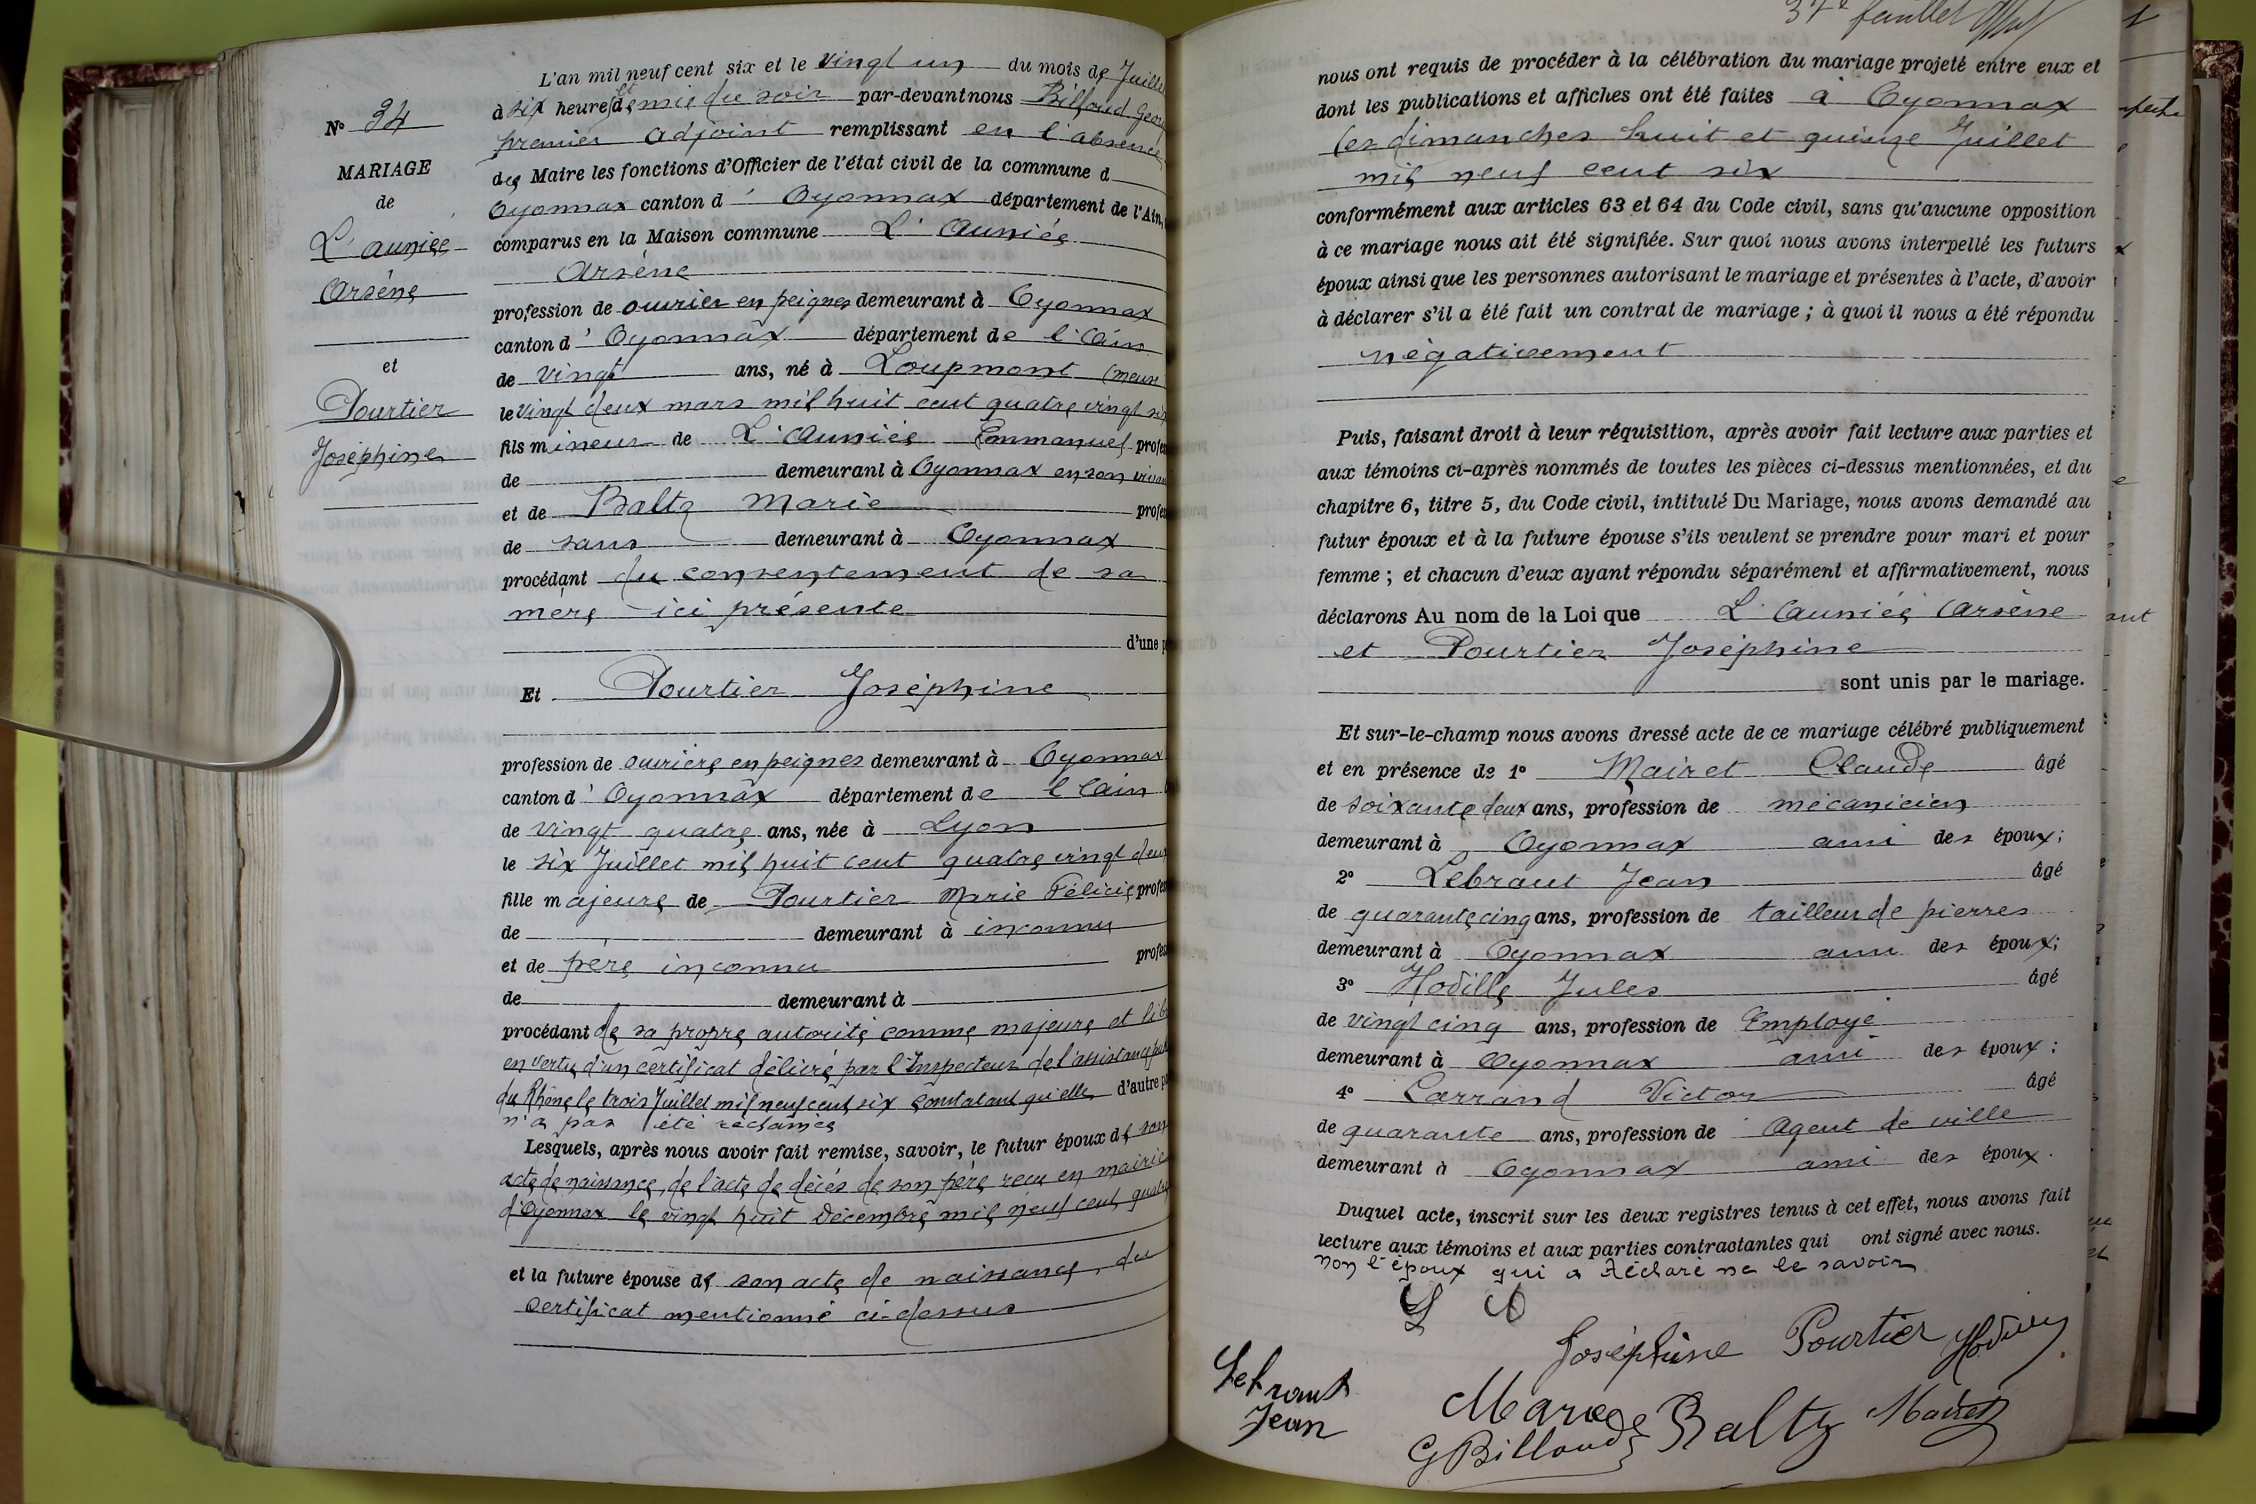 N° 34
MARIAGE
de
L'aunieé
Arsène
et
Pourtier
Joséphine
L'an mil neuf cent six et le vingt un du mois de Juillet
à six heures et demie du soir par-devant nous Billoud Geor
premier adjoint remplissant en l'absence
des Maire les fonctions d'Officier de l'état civil de la commune d
Oyonnax canton d' Oyonnax département de l'Ain,
comparus en la Maison commune L'Auniée
Arsène
profession de ouvrier en peignes demeurant à Oyonnax
canton d' Oyonnax département de l'Ain
de vingt ans, né à Loupmont (meuse
le vingt deux mars mil huit cent quatre vingt six
fils mineur de L'Auniée Emmanuel profes
de demeurant à Oyonnax en son vivan
et de Baltz Marie profes
de sans demeurant à Oyonnax
procédant du consentement de sa
mère ici présente
d'une p
Et Pourtier Joséphine
profession de ouvrière en peignes demeurant à Oyonnax
canton d' Oyonnax département de l'Ain
de vingt quatre ans, née à Lyon
le six Juillet mil huit cent quatre vingt deux
fille majeure de Pourtier Marie Félicie profes
de demeurant à inconnu
et de père inconnu profes
de demeurant à
procédant de sa propre autorité comme majeure et lib
en vertu d'un certificat délivré par l'Inspecteur de l'assistance pub
du Rhône le trois Juillet mil neuf cent six constatant qu'elle d'autre pa
n'a pas été réclamée
Lesquels, après nous avoir fait remise, savoir, le futur époux de son
acte de naissance, de l'acte de décès de son père reçu en mairie
d'Oyonnax le vingt huit Décembre mil neuf cent quatre
et la future épouse de son acte de naissance, du
certificat mentionné ci-dessus
37e feuillet
nous ont requis de procéder à la célébration du mariage projeté entre eux et
dont les publications et affiches ont été faites à Oyonnax
les dimanches huit et quinze Juillet
mil neuf cent six
conformément aux articles 63 et 64 du Code civil, sans qu'aucune opposition
à ce mariage nous ait été signifiée. Sur quoi nous avons interpellé les futurs
époux ainsi que les personnes autorisant le mariage et présentes à l'acte, d'avoir
à déclarer s'il a été fait un contrat de mariage ; à quoi il nous a été répondu
négativement
Puis, faisant droit à leur réquisition, après avoir fait lecture aux parties et
aux témoins ci-après nommés de toutes les pièces ci-dessus mentionnées, et du
chapitre 6, titre 5, du Code civil, intitulé Du Mariage, nous avons demandé au
futur époux et à la future épouse s'ils veulent se prendre pour mari et pour
femme ; et chacun d'eux ayant répondu séparément et affirmativement, nous
déclarons Au nom de la Loi que L'Auniée Arsène
et Pourtier Joséphine
sont unis par le mariage.
Et sur-le-champ nous avons dressé acte de ce mariage célébré publiquement
et en présence de 1° Mairet Claude âgé
de soixante deux ans, profession de mécanicien
demeurant à Oyonnax ami des époux;
2° Lebraut Jean âgé
de quarante cinq ans, profession de tailleur de pierres
demeurant à Oyonnax ami des époux;
3° Hodille Jules âgé
de vingt cinq ans, profession de Employé
demeurant à Oyonnax ami des époux;
4° Larrand Victor âgé
de quarante ans, profession de Agent de ville
demeurant à Oyonnax ami des époux.
Duquel acte, inscrit sur les deux registres tenus à cet effet, nous avons fait
lecture aux témoins et aux parties contractantes qui ont signé avec nous.
non l'époux qui a déclaré ne le savoir
Joséphine Pourtier Hodille
Lebraut
Jean
Marie Baltz Mairet
G Billoud